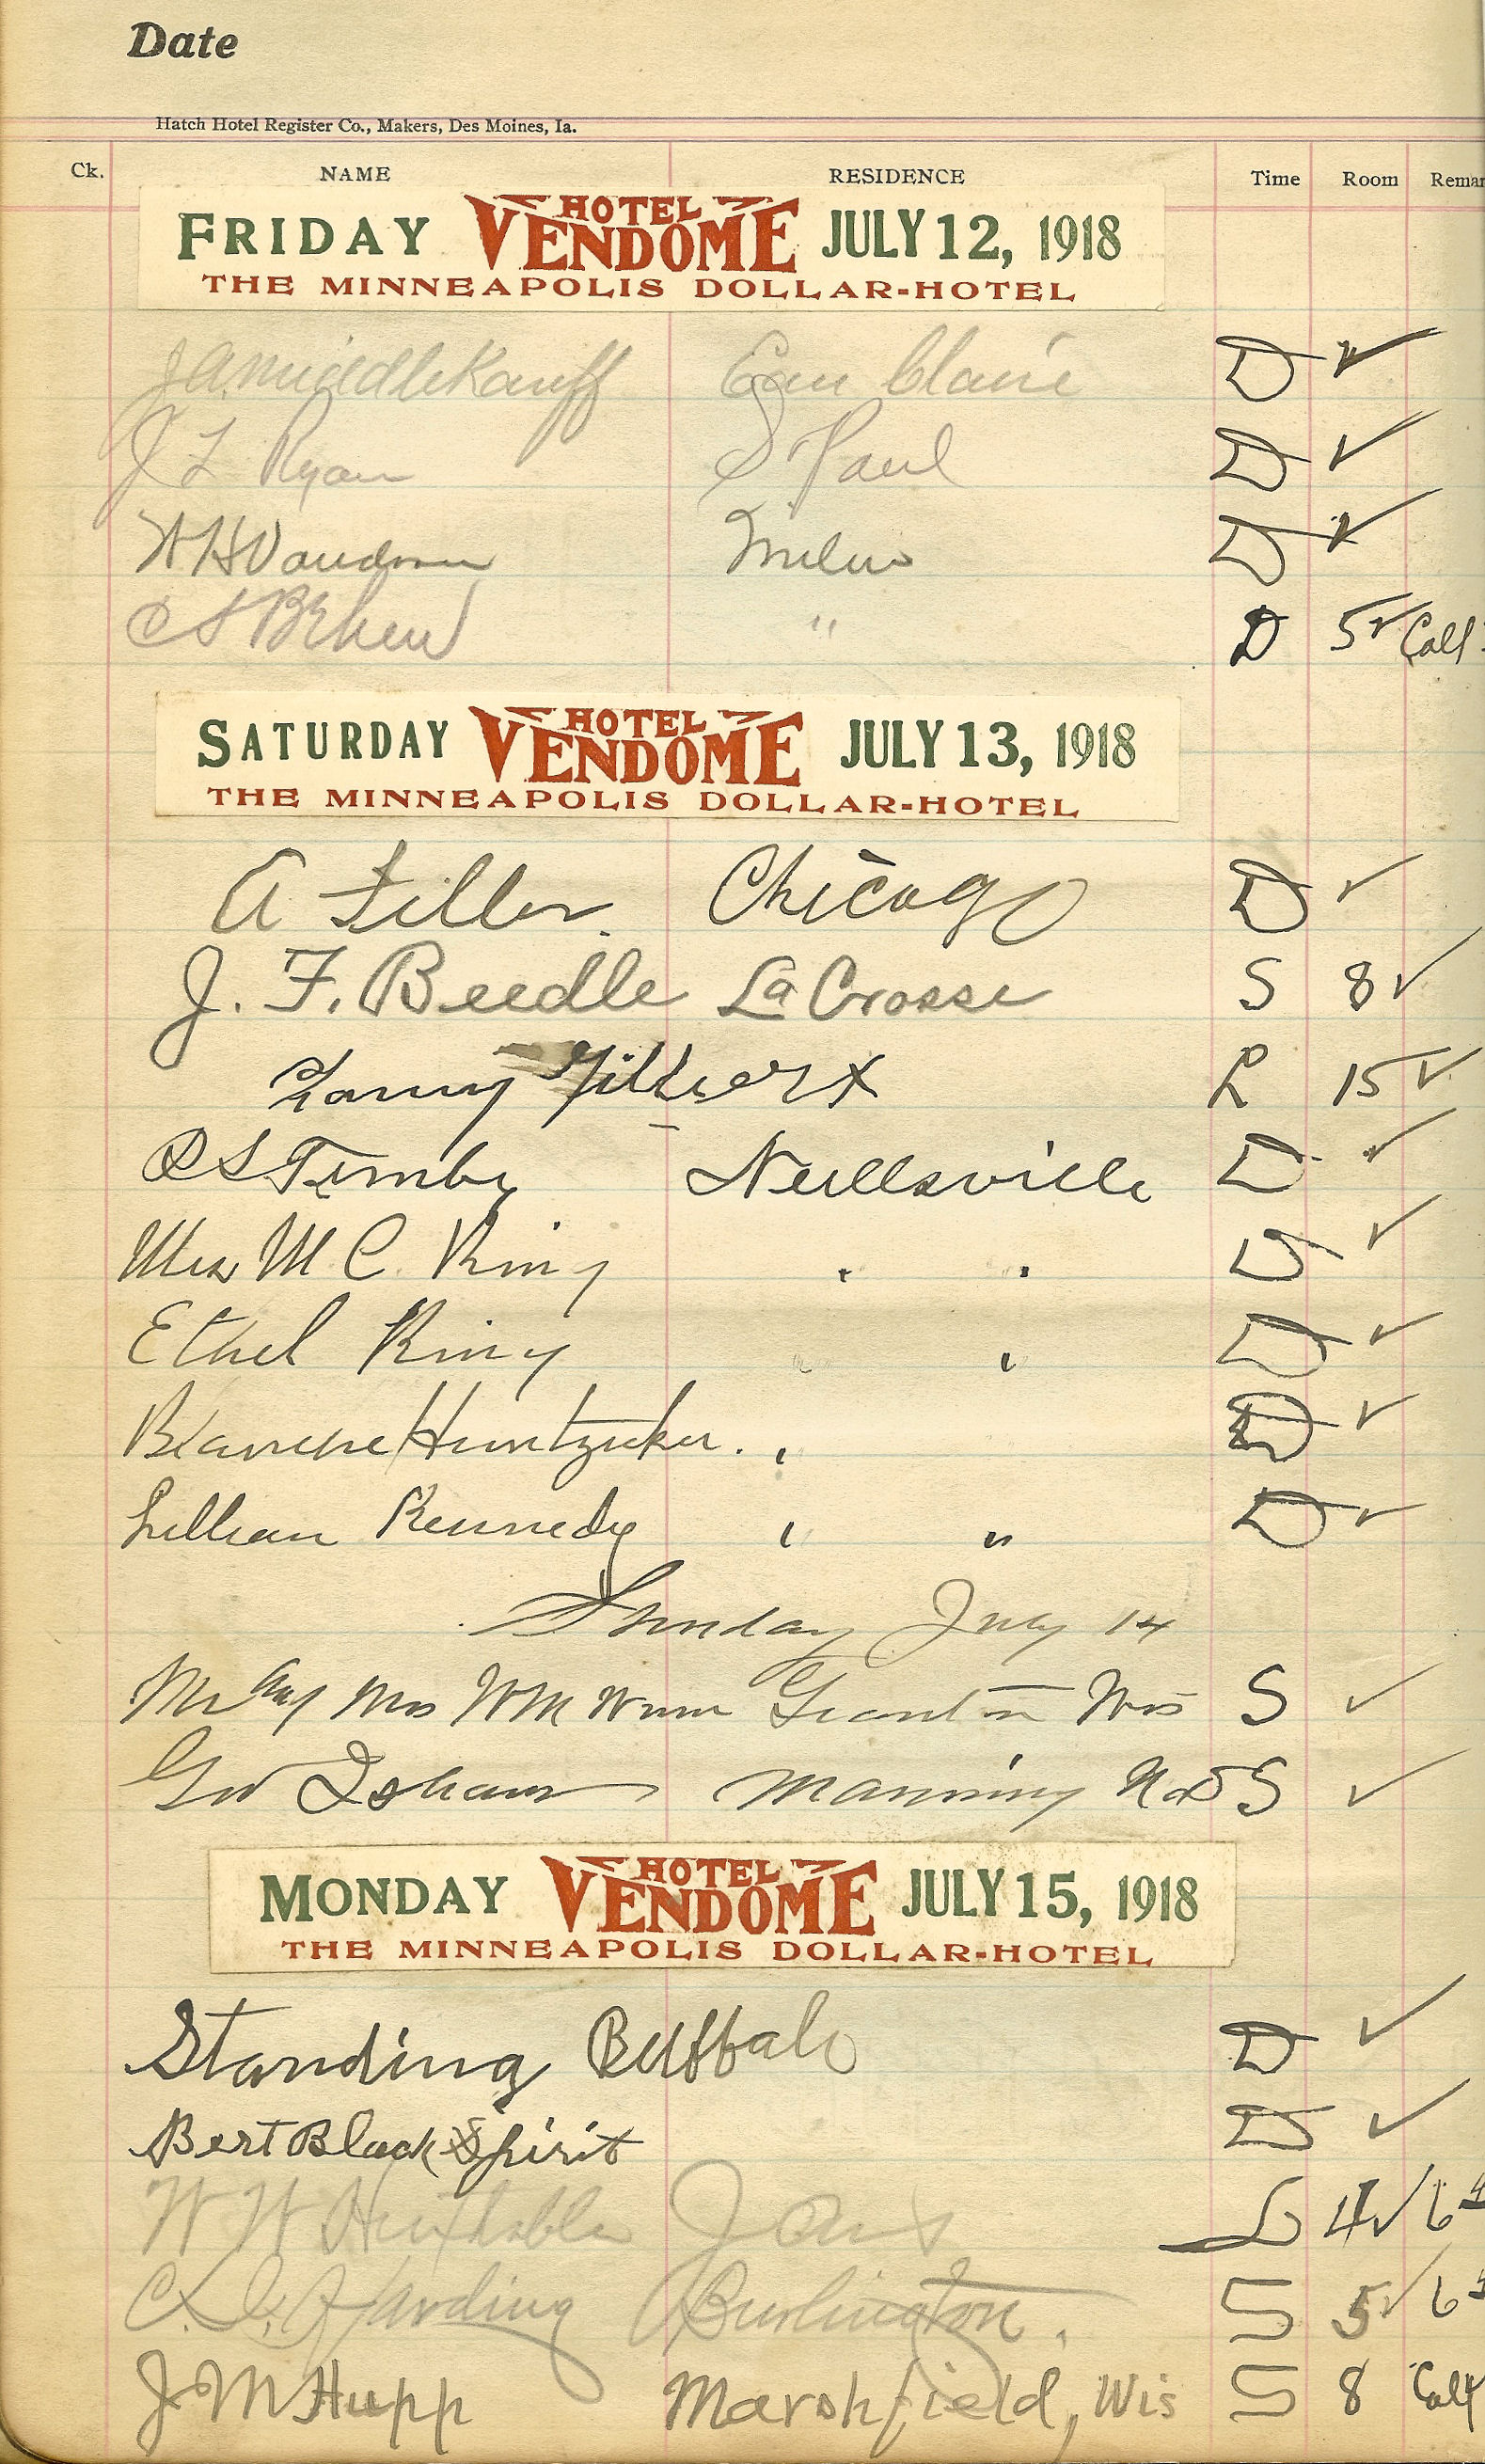 Date
Hatch Hotel Register Co., Makers, Des Moines, Ia.
Ck. NAME RESIDENCE Time Room Remar
FRIDAY HOTEL VENDOME JULY 12, 1918
THE MINNEAPOLIS DOLLAR-HOTEL
Eau Claire D ✓
J L Ryan S Paul D ✓
D ✓
" D 5 ✓ Call
SATURDAY HOTEL VENDOME JULY 13, 1918
THE MINNEAPOLIS DOLLAR-HOTEL
A Chicago D ✓
J. F. Beedle La Crosse S 8 ✓
L 15 ✓
Neillsville D ✓
Mrs M C King " " D ✓
Ethel King " " D ✓
Blanche Huntzicker. " D ✓
Lillian Kennedy " " D ✓
Sunday July 14
Mr and Mrs Wm Granton Wis S ✓
Geo Manning N D S ✓
MONDAY HOTEL VENDOME JULY 15, 1918
THE MINNEAPOLIS DOLLAR-HOTEL
Standing Buffalo D ✓
Bert Black Spirit D ✓
W W 4 ✓ 6
Harding Burlington. S 5 ✓ 6
J M Hupp Marshfield, Wis S 8 Call